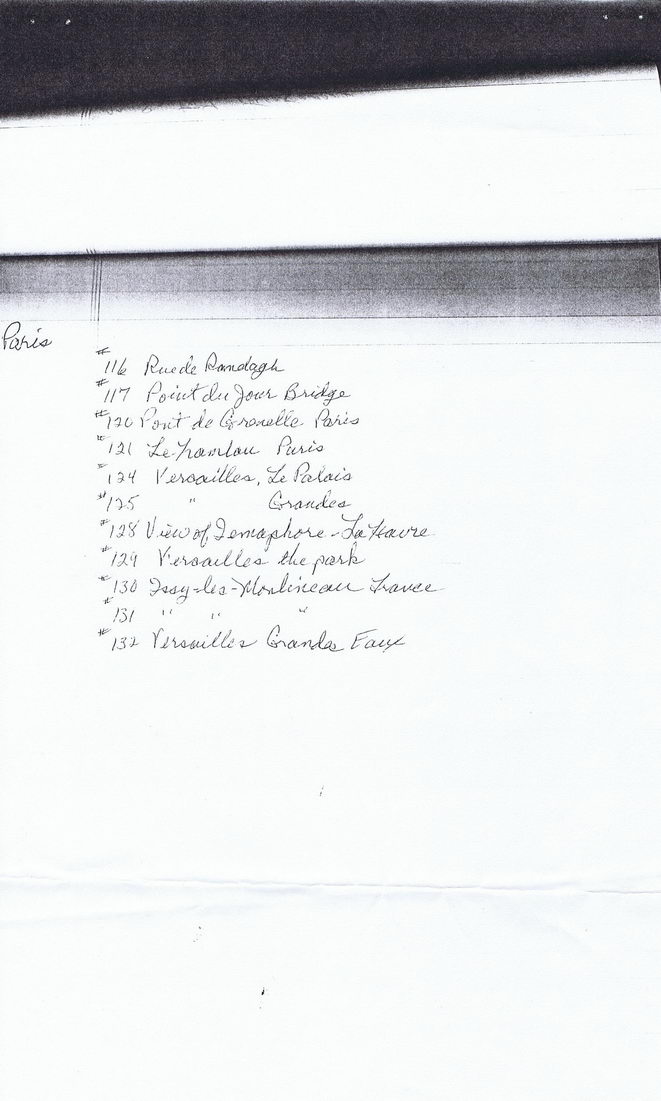 Paris
#116 Rue de Randagh
#117 Point du Jour Bridge
#120 Pont de Grenelle Paris
#121 Le Paris
#124 Versailles, Le Palais
#125 " Grandes
#128 View of Semaphore - La Havre
#129 Versailles the park
#130 Issy-les-Moulineau France
#131 " " "
#132 Versailles Grandes Eaux